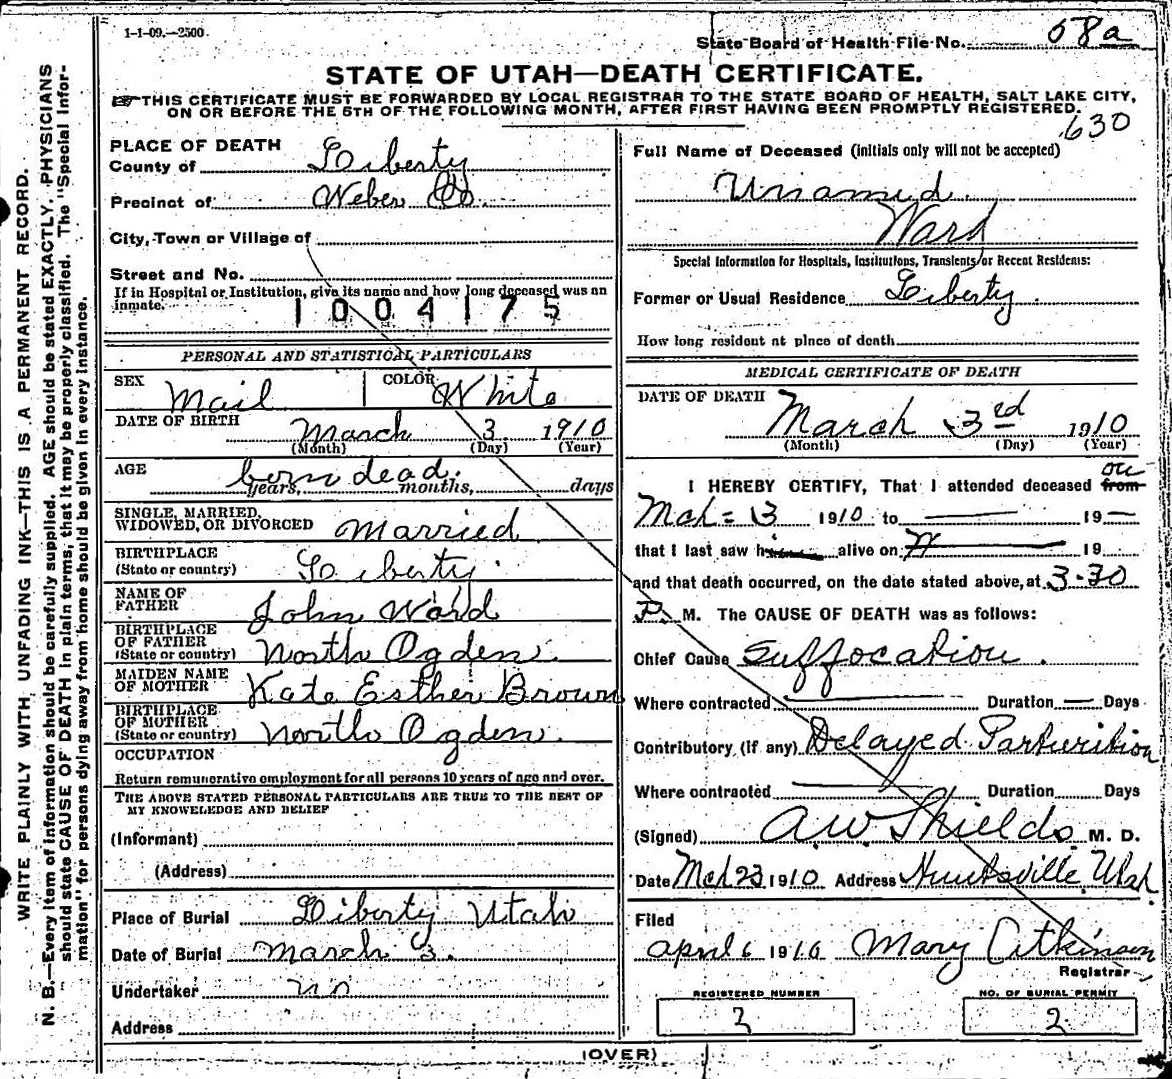 1-1-09.—2500.
State Board of Health File No. 58a
STATE OF UTAH—DEATH CERTIFICATE.
THIS CERTIFICATE MUST BE FORWARDED BY LOCAL REGISTRAR TO THE STATE BOARD OF HEALTH, SALT LAKE CITY,
ON OR BEFORE THE 5TH OF THE FOLLOWING MONTH, AFTER FIRST HAVING BEEN PROMPTLY REGISTERED.
630
WRITE PLAINLY WITH UNFADING INK—THIS IS A PERMANENT RECORD.
N. B.—Every item of information should be carefully supplied. AGE should be stated EXACTLY. PHYSICIANS
should state CAUSE OF DEATH in plain terms, that it may be properly classified. The "Special Infor-
mation" for persons dying away from home should be given in every instance.
PLACE OF DEATH
County of Liberty
Precinct of Weber Co.
City, Town or Village of
Street and No.
If in Hospital or Institution, give its name and how long deceased was an
inmate.
1004175
PERSONAL AND STATISTICAL PARTICULARS
SEX Mail COLOR White
DATE OF BIRTH March 3 1910
(Month) (Day) (Year)
AGE born dead.
years, months, days
SINGLE, MARRIED,
WIDOWED, OR DIVORCED Married
BIRTHPLACE
(State or country) Liberty.
NAME OF
FATHER John Ward
BIRTHPLACE
OF FATHER
(State or country) North Ogden.
MAIDEN NAME
OF MOTHER Kate Esther Brown
BIRTHPLACE
OF MOTHER
(State or country) North Ogden.
OCCUPATION
Return remunerative employment for all persons 10 years of age and over.
THE ABOVE STATED PERSONAL PARTICULARS ARE TRUE TO THE BEST OF
MY KNOWLEDGE AND BELIEF
(Informant)
(Address)
Place of Burial Liberty Utah
Date of Burial March 3.
Undertaker no
Address
Full Name of Deceased (initials only will not be accepted)
Unamed.
Ward
Special Information for Hospitals, Institutions, Transients or Recent Residents:
Former or Usual Residence Liberty.
How long resident at place of death
MEDICAL CERTIFICATE OF DEATH
DATE OF DEATH
March 3rd 1910
(Month) (Day) (Year)
on
I HEREBY CERTIFY, That I attended deceased from
Mch = 3 1910 to — 19—
that I last saw h alive on 19
and that death occurred, on the date stated above, at 3-30
P. M. The CAUSE OF DEATH was as follows:
Chief Cause Suffocation.
Where contracted — Duration — Days
Contributory (if any) Delayed Parturition
Where contracted — Duration Days
(Signed) A.W. Shields. M. D.
Date Mch 23 1910 Address Huntsville, Utah
Filed
april 6 1910 Mary Atkinson
Registrar
REGISTERED NUMBER
2
NO. OF BURIAL PERMIT
2
(OVER)